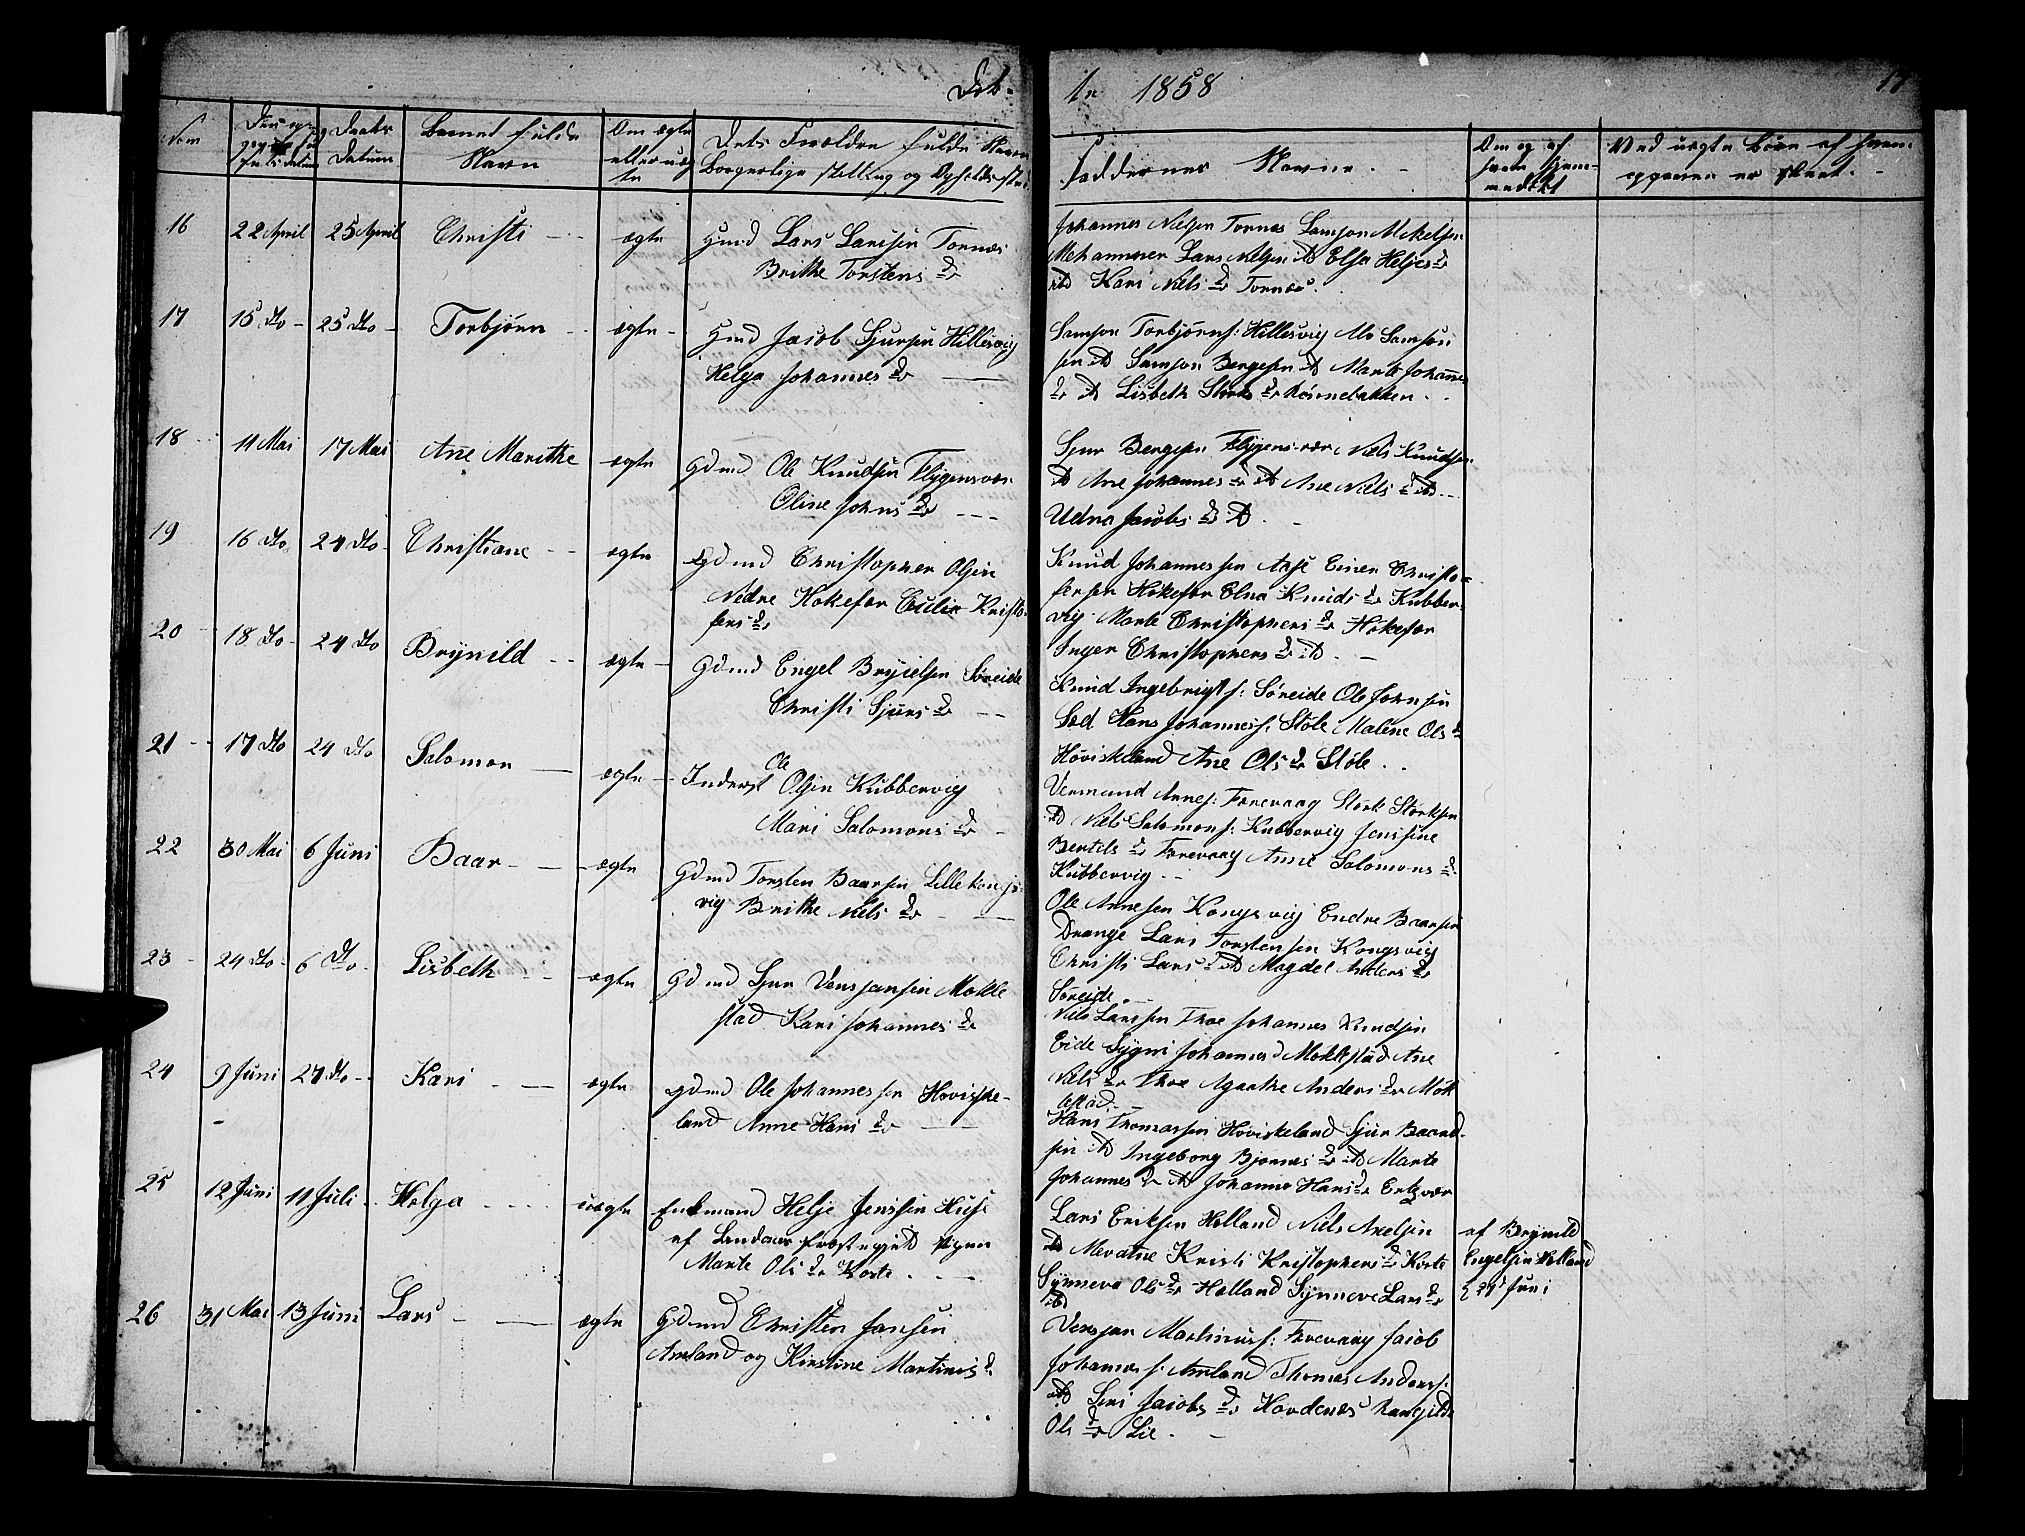 Døb-
te 1858
17
Nom
Datum
Barnets fulde
Navn
Om ægte
eller uæg
te
Dets Forældres fulde Navne
Borgerlige Stilling og Opholds sted
Faddernes Navne. -
Om og af
hvem hjem-
medøbt
Ved uægte Børn af hvem
16
22 April
25 April
Christi
ægte
Hmd Lars Larssen Tornæs
Brithe Torstens Dr
Johannes Nielsen Tornæs Samson Mikelsen
Lars Nielsen ibd Elsa Heljes Dr
ibd Kari Niels Dr Tornæs.
17
15 dto
25 dto
Torbjørn
ægte
Hmd Jacob Sjursen Hillesvig
Helga Johannes Dr
Samson Torbjørns: Hillesvig Ole Samson
sen ibd Samson Bergesen ibd Marte Johannes
Dr ibd Lisbeth Størks Dr
18
11 Mai
17 Mai
Ane Marithe
ægte
Gdmd Ole Knudsen Flygensvær
Oline Johns Dr
Sjur Bergesen Flygensvær Niels Knudsen
ibd Ane Johannes Dr ibd Ane Niels Dr ibd
Udna Jacobs Dr ibd.
19
16 dto
24 dto
Christiane
ægte
Gdmd Christopher Olsen
Nedre Hokefær Cecilie Kristo-
fers Dr
Knud Johannessen Aase Einer Christo-
fersen Hokefær Elna Knuds Dr Kubber-
vig Marte Christophers Dr Hokefær
Inger Christophers Dr ibd.
20
18 dto
24 dto
Brynild
ægte
Gdmd Engel Brynielsen Søreide
Christi Sjurs Dr
Knud Ingebrigts: Søreide Ole Johnsen
Sæd Hans Johanness: Støle Malene Ols Dr
Høviskeland Ane Ols Dr Støle.
21
17 dto
24 dto
Salomon
ægte
Inderst Ole Olsen Kubbervig
Mari Salomons Dr
Vermund Annes: Færevaag Størk Størksen
ibd Niels Salomons: Kubbervig Jensine
Bertels Dr Færevaag Anne Salomons Dr
Kubbervig.
22
30 Mai
6 Juni
Baar
ægte
Gdmd Torsten Baarsen Lille Kongs
vig Brithe Niels Dr
Ole Annesen Kongsvig Endre Baarsen
Drange Lars Torstensen Kongsvig
Christi Lars Dr ibd Magdel Anders Dr
Søreide.
23
24 dto
6 dto
Lisbeth
ægte
Gdmd Sjur Vensjansen Mokle
stad Kari Johannes Dr
Niels Larssen Thoe Johannes Knudsen
Eide Sygni Johannes Dr Moklestad Ane
Niels Dr Thoe Agathe Anders Dr Mok
lestad.
24
9 Juni
27 dto
Kari
ægte
Gdmd Ole Johannessen Høviske-
land Anne Hans Dr
Hans Thomassen Høviskeland Sjur Baard-
sen ibd Ingeborg Bjørnes Dr ibd Marte
Johannes Dr ibd Johanna Hans Dr
25
12 Juni
11 Juli
Helga
uægte
Enkmand Helje Jenssen Huse
af Præstegjeld Pigen
Marte Ols Dr Korte.
Lars Eriksen Holland Niels Axelsen
Mevatne Kristi Kristophers Dr Korte
Synneva Ols Dr Holland Synneve Lars Dr
ibd
af Brynild
Engelsen Holland
d 29 Juni
26
31 Mai
13 Juni
Lars
ægte
Gdmd Christen Jansen
Amland og Kirstine Martines Dr
Vensjan Martinuss: Færevaag Jacob
Johannes s: Amland Thomas Anders s:
ibd Seri Jacobs Dr Hovdenæs Rangilde
Ols Dr Lie.